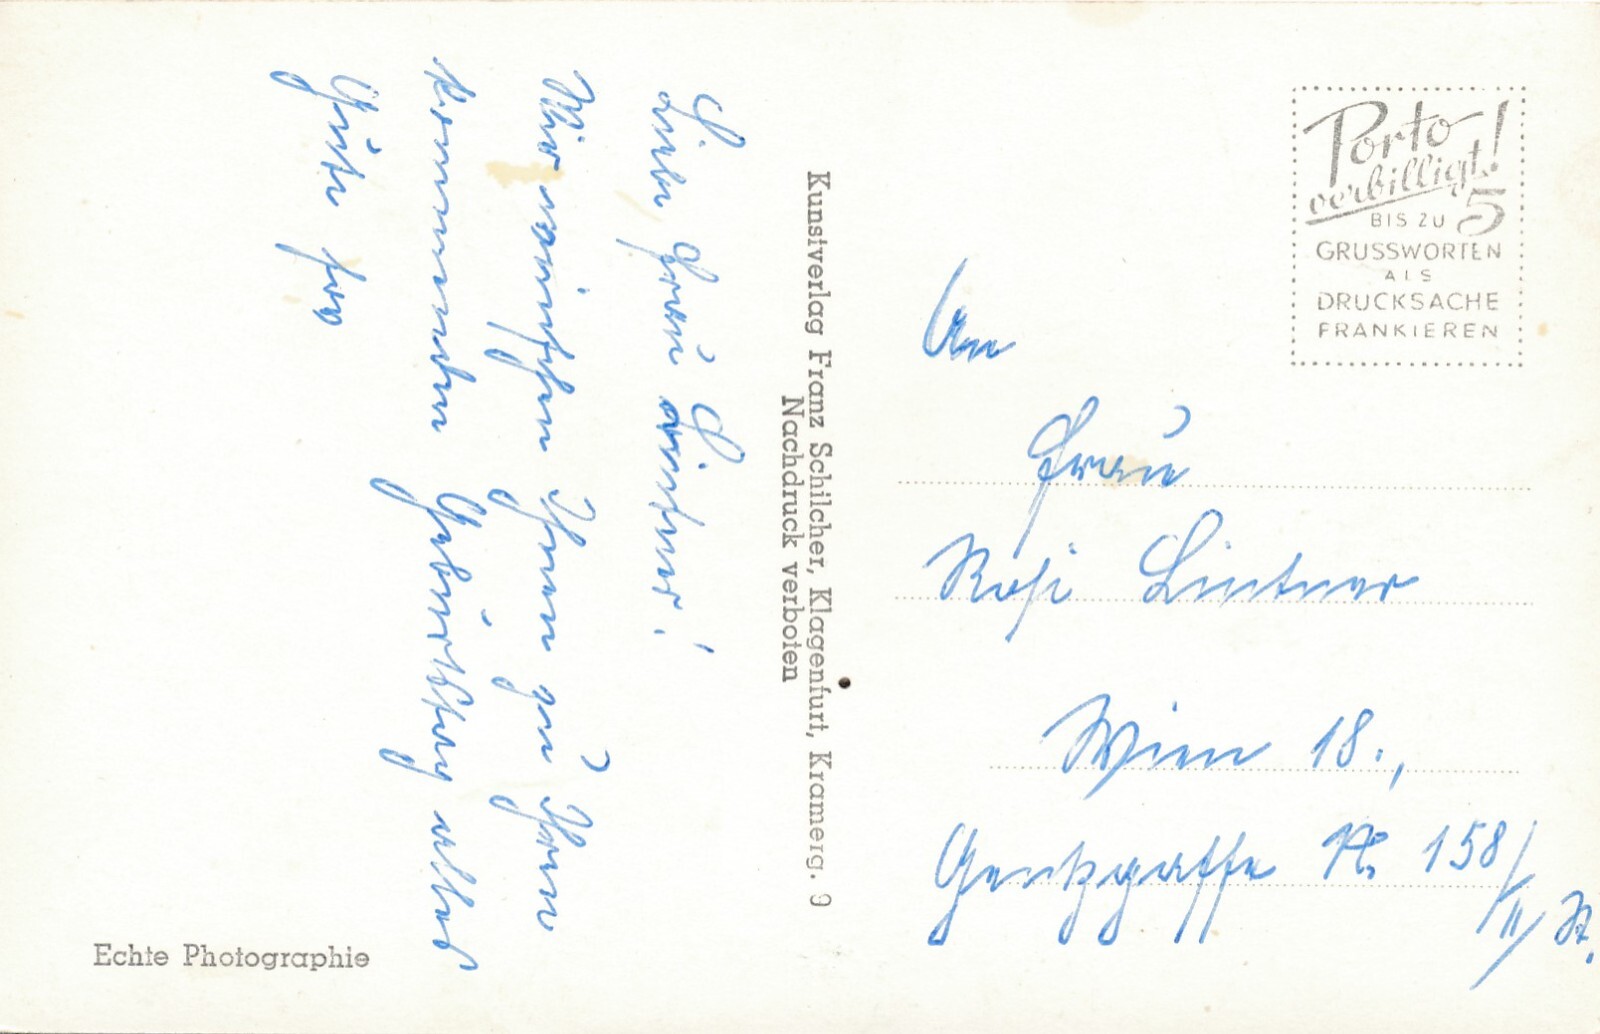 Liebe Frau Lintner!
Wir wünschen Ihnen zu Ihrem
kommenden Geburtstag alles
Gute
Kunstverlag Franz Schilcher, Klagenfurt, Kramerg. 9
Nachdruck verboten
Echte Photographie
Porto
verbilligt!
BIS ZU 5
GRUSSWORTEN
ALS
DRUCKSACHE
FRANKIEREN
An
Frau
Rosi Lintner
Wien 18.,
Gentzgasse Nr. 158/
II/